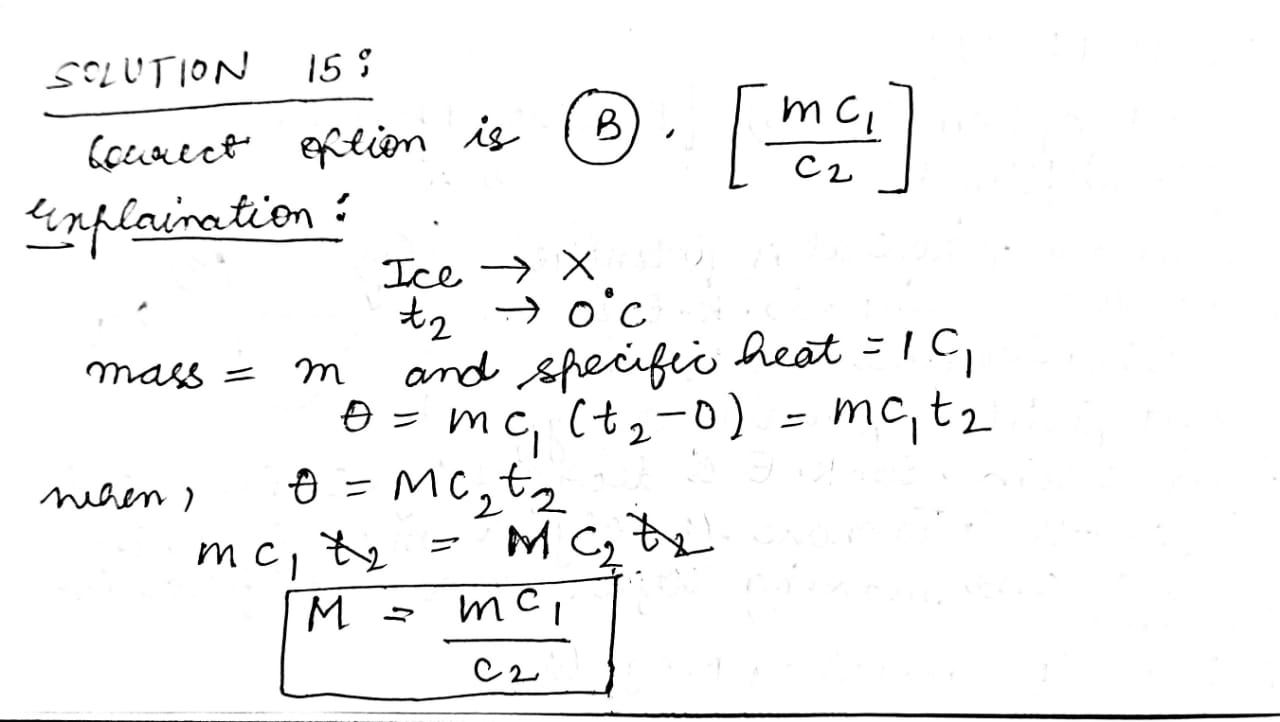 SOLUTION 15:
Correct option is (B). [mC₁/C₂]
Explaination:
Ice → X
t₂ → 0°C
mass = m and specific heat = 1 C₁
θ = mC₁ (t₂-0) = mC₁t₂
when, θ = MC₂t₂
mC₁ t₂ = MC₂ t₂
M = mC₁/C₂